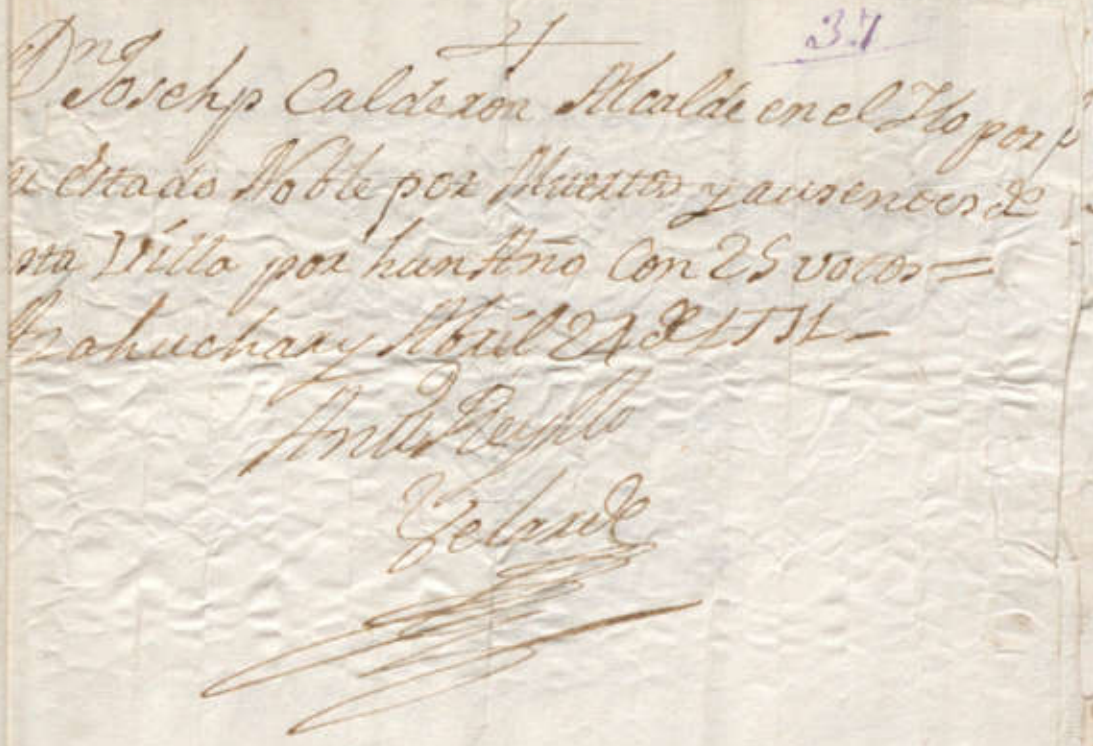 37
Dn Josehp Calderon Alcalde en el Ho por
su estado Noble por Muertos y ausentes de
esta Villa por hun Año Con 25 votos =
y Abril 24 de
Velarde